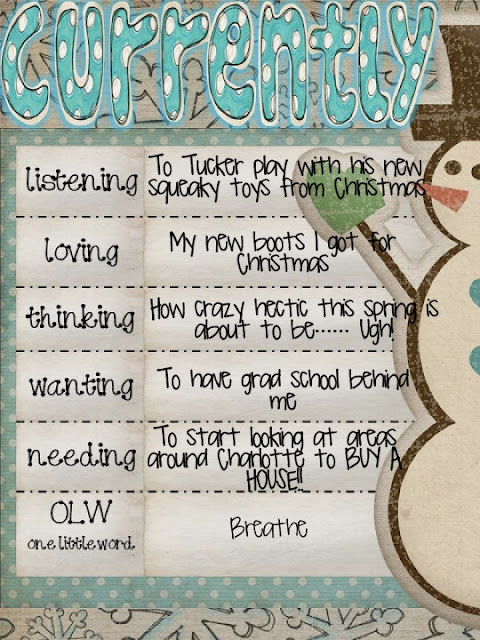 currently
listening
To Tucker play with his new
squeaky toys from Christmas
loving
My new boots I got for
Christmas
thinking
How crazy hectic this spring is
about to be...... Ugh!
wanting
To have grad school behind
me
needing
To start looking at areas
around Charlotte to BUY A
HOUSE!!
OLW
one little word
Breathe